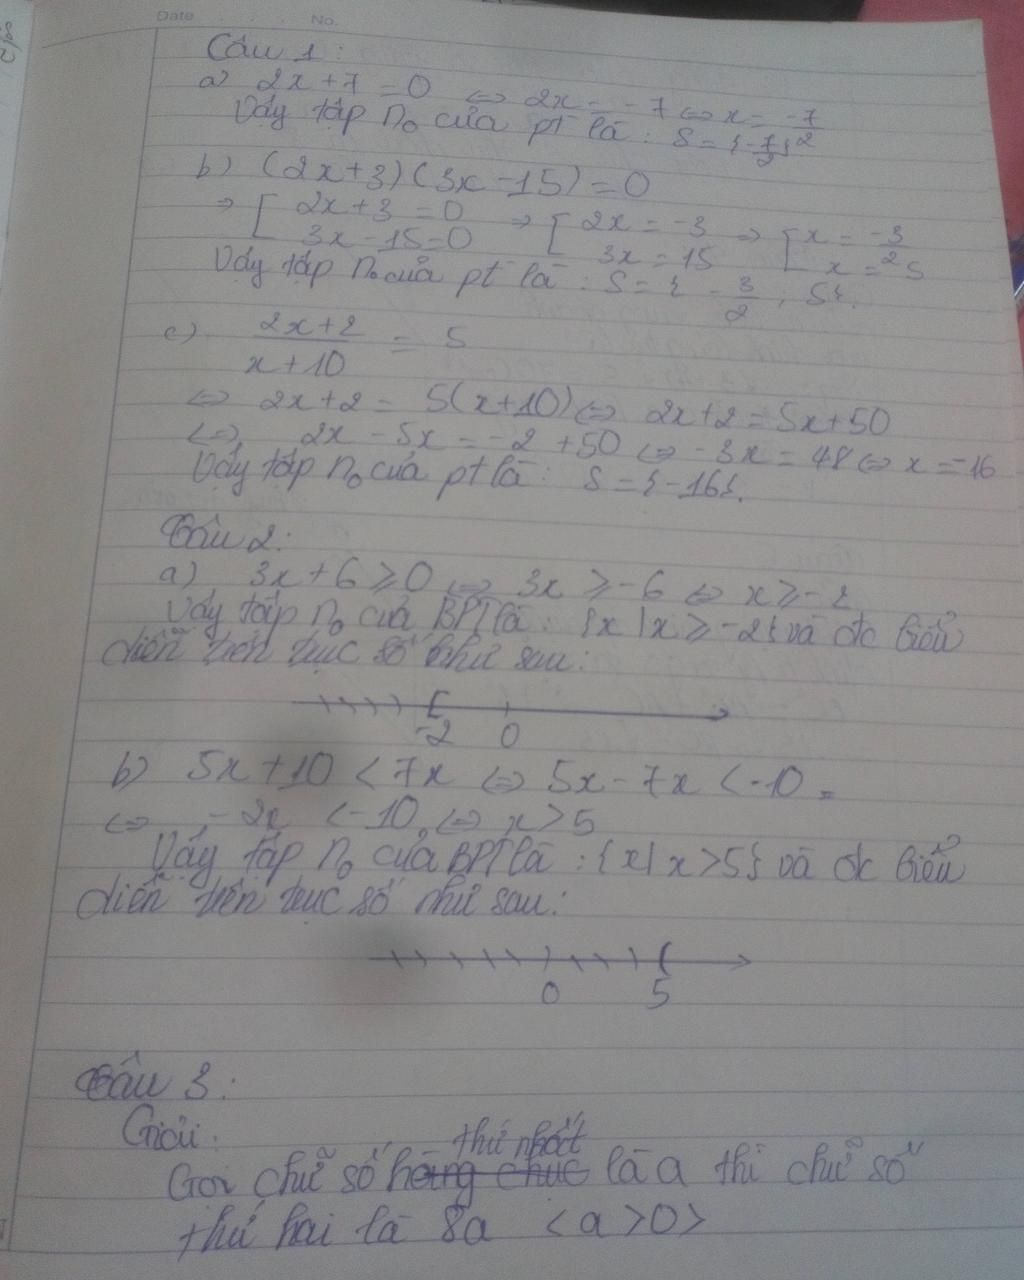 Date No.
Câu 1:
a) 2x+7 = 0 ⇔ 2x = -7 ⇔ x = -7/2
Vậy tập n₀ của pt là: S = {-7/2}
b) (2x+3)(3x-15)=0
⇒ [ 2x+3=0 ⇒ [ 2x = -3 ⇒ [ x = -3/2
3x-15=0 3x = 15 x = 5
Vậy tập n₀ của pt là: S = { -3/2 ; 5}.
c) (2x+2)/(x+10) = 5
⇔ 2x+2 = 5(x+10) ⇔ 2x+2 = 5x+50
⇔ 2x - 5x = -2 +50 ⇔ -3x = 48 ⇔ x = -16
Vậy tập n₀ của pt là: S = {-16}.
Câu 2:
a) 3x+6 ≥ 0 ⇔ 3x ≥ -6 ⇔ x ≥ -2
Vậy tập n₀ của BPT là: {x | x ≥ -2} và đc biểu
diễn trên trục số như sau:
-2 0
b) 5x+10 < 7x ⇔ 5x - 7x < -10
⇔ -2x < -10 ⇔ x > 5
Vậy tập n₀ của BPT là: {x | x > 5} và đc biểu
diễn trên trục số như sau:
0 5
Câu 3:
Giải:
thứ nhất
Gọi chữ số hàng chục là a thì chữ số
thứ hai là 8a <a > 0>